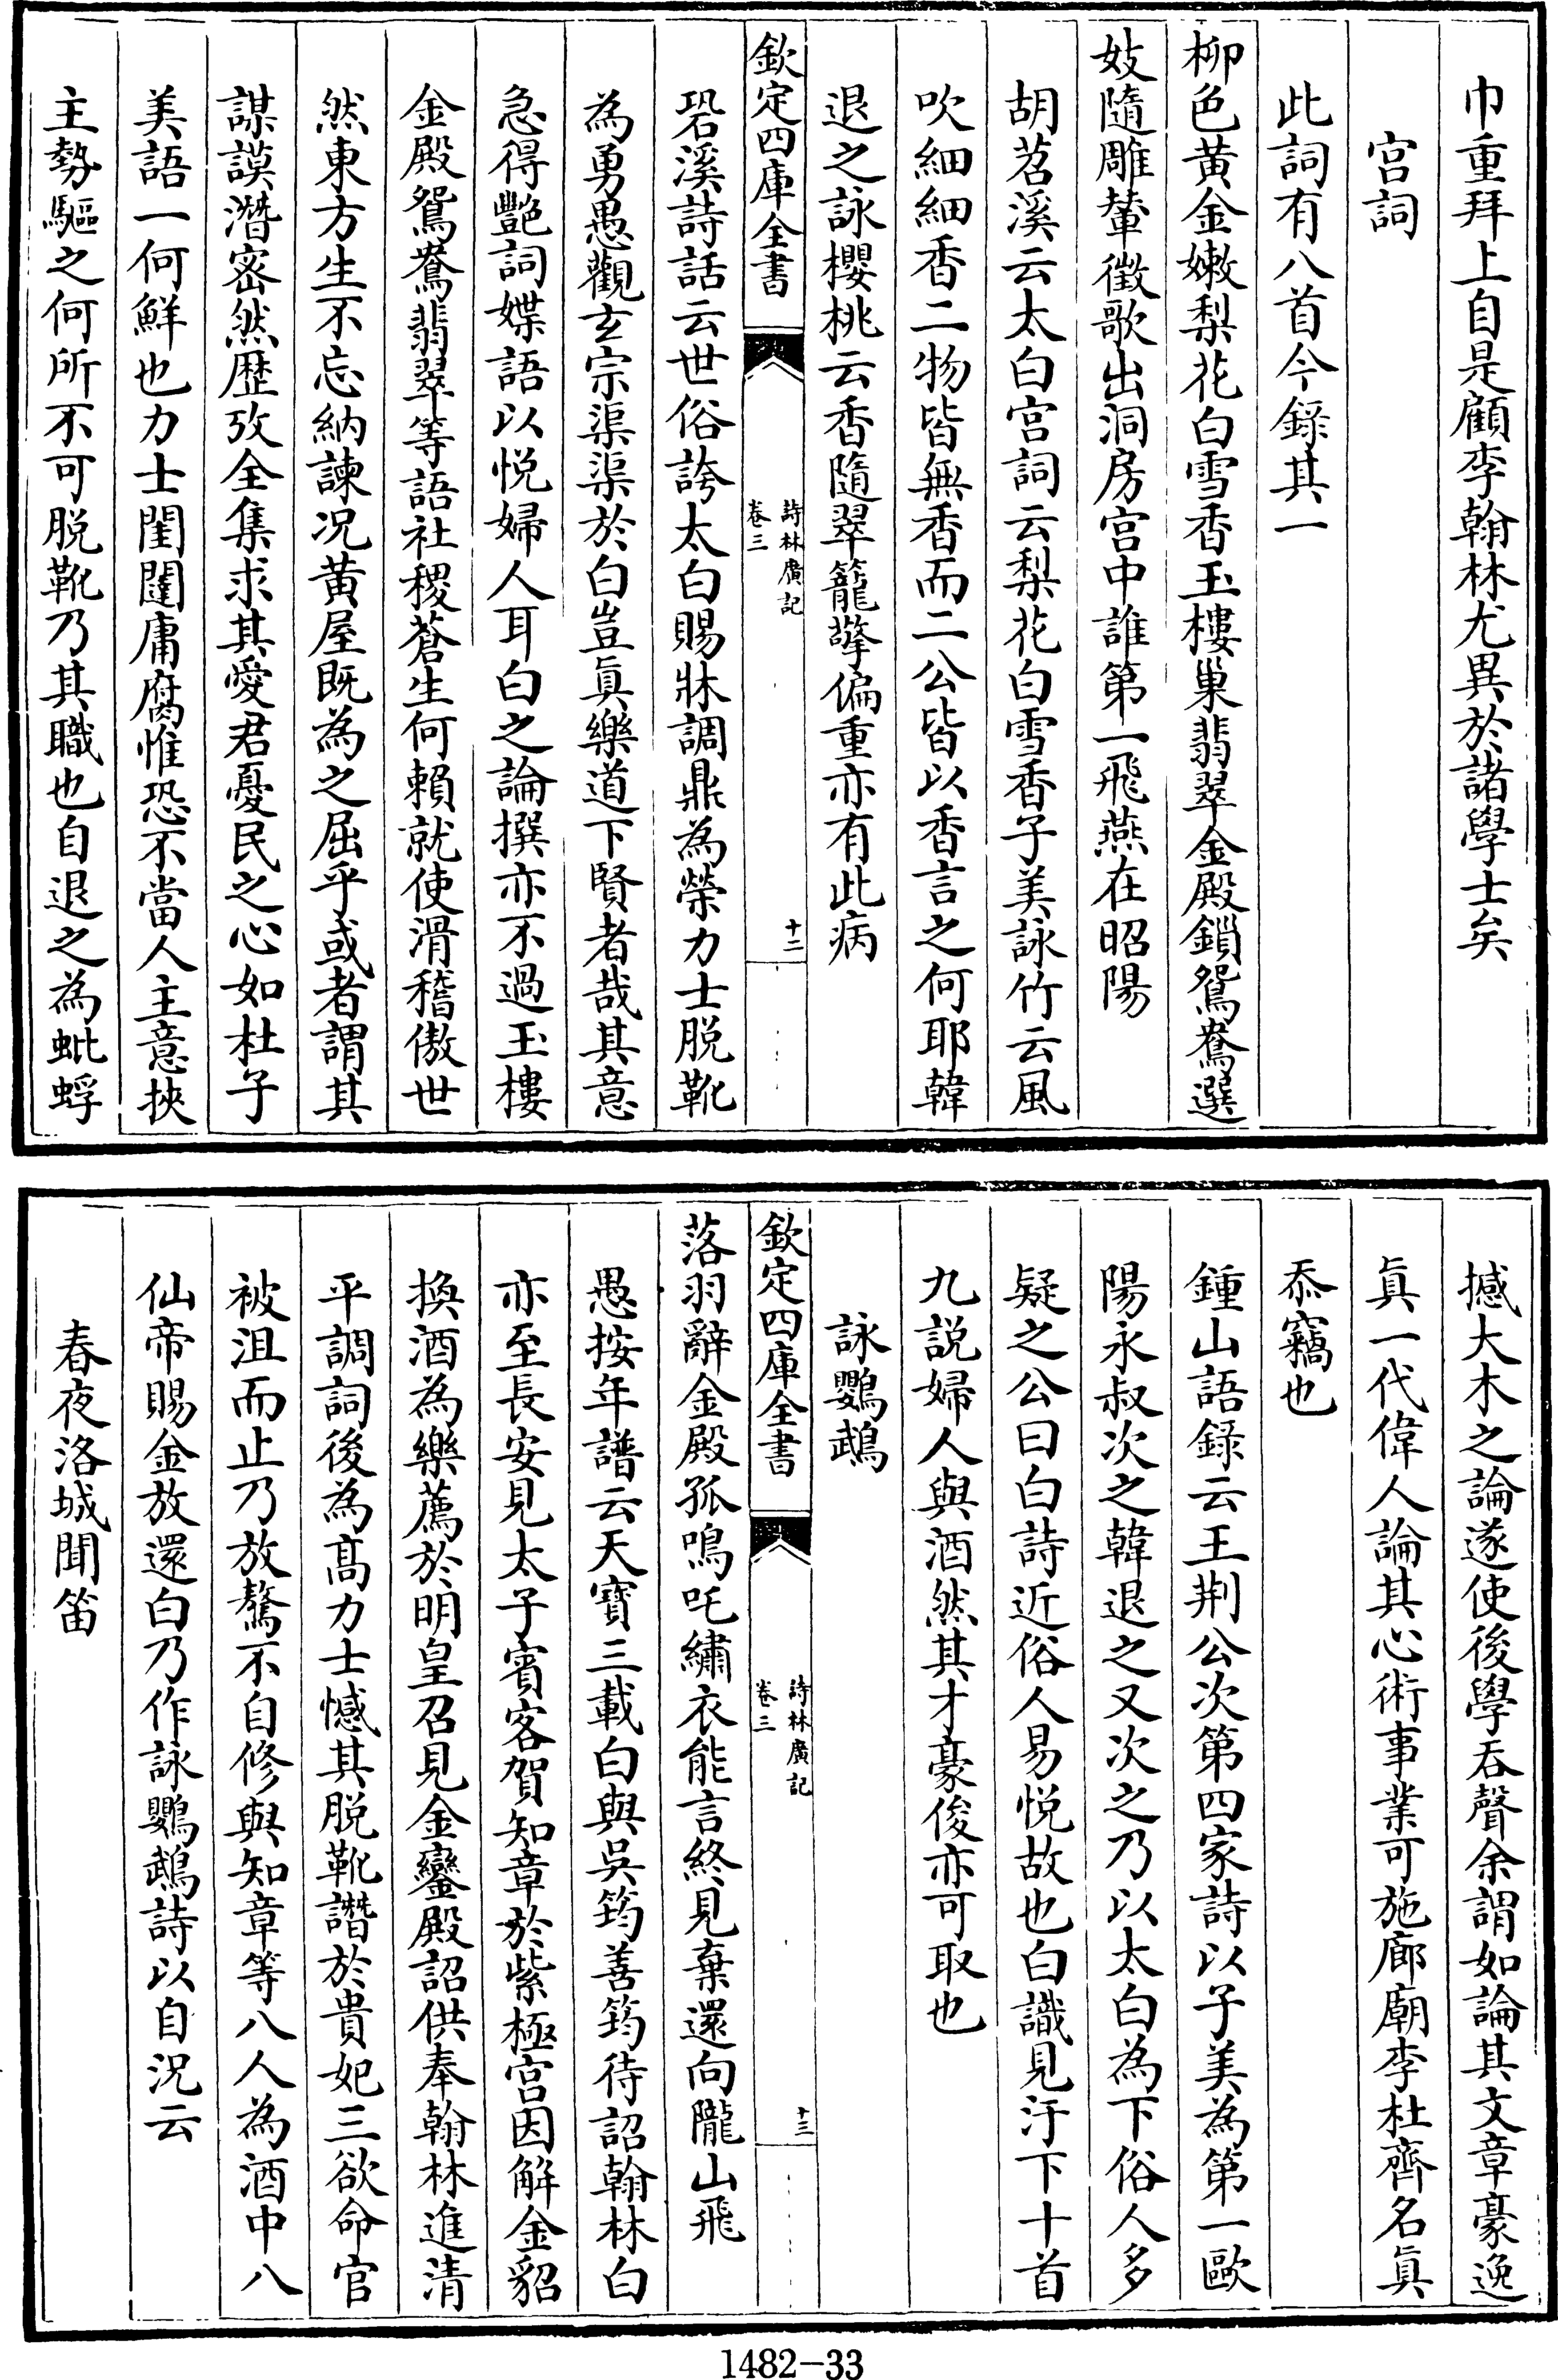 巾重拜上自是顧李翰林尤異於諸學士矣
宫詞
此詞有八首今録其一
柳色黄金嫩梨花白雪香玉樓巢翡翠金殿鎖鴛鴦選
妓隨雕輦徵歌出洞房宫中誰第一飛燕在昭陽
胡苕溪云太白宫詞云梨花白雪香子美詠竹云風
吹細細香二物皆無香而二公皆以香言之何耶韓
退之詠櫻桃云香隨翠籠擎偏重亦有此病
欽定四庫全書
詩林廣記
卷三
十二
䂬溪詩話云世俗誇太白賜牀調鼎為榮力士脱靴
為勇愚觀玄宗渠渠於白豈眞樂道下賢者哉其意
急得艷詞媟語以悦婦人耳白之論撰亦不過玉樓
金殿鴛鴦翡翠等語社稷蒼生何賴就使滑稽傲世
然東方生不忘納諫况黄屋既為之屈乎或者謂其
謀謨潛密然歴攷全集求其愛君憂民之心如杜子
美語一何鮮也力士閨闥庸腐惟恐不當人主意挾
主勢驅之何所不可脱靴乃其職也自退之為蚍蜉
撼大木之論遂使後學吞聲余謂如論其文章豪逸
眞一代偉人論其心術事業可施廊廟李杜齊名眞
忝竊也
鍾山語録云王荆公次第四家詩以子美為第一歐
陽永叔次之韓退之又次之乃以太白為下俗人多
疑之公曰白詩近俗人易悦故也白識見汙下十首
九説婦人與酒然其才豪俊亦可取也
詠鸚鵡
欽定四庫全書
詩林廣記
卷三
十三
落羽辭金殿孤鳴吒繡衣能言終見棄還向隴山飛
愚按年譜云天寶三載白與吳筠善筠待詔翰林白
亦至長安見太子賓客賀知章於紫極宫因解金貂
換酒為樂薦於明皇召見金鑾殿詔供奉翰林進清
平調詞後為髙力士憾其脱靴譖於貴妃三欲命官
被沮而止乃放驁不自修與知章等八人為酒中八
仙帝賜金放還白乃作詠鸚鵡詩以自況云
春夜洛城聞笛
1482-33